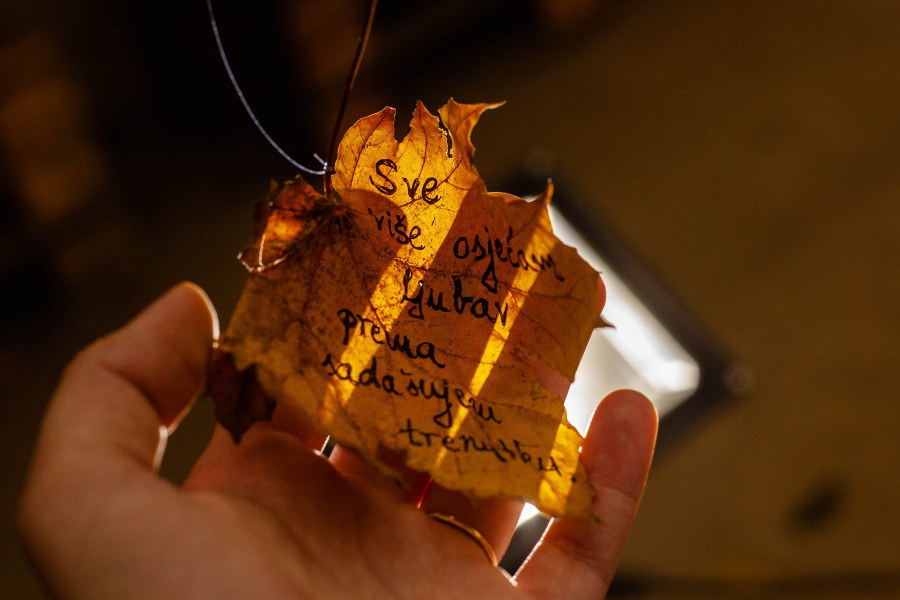 Sve
više osjećam
ljubav
prema
sadašnjem
trenutku.